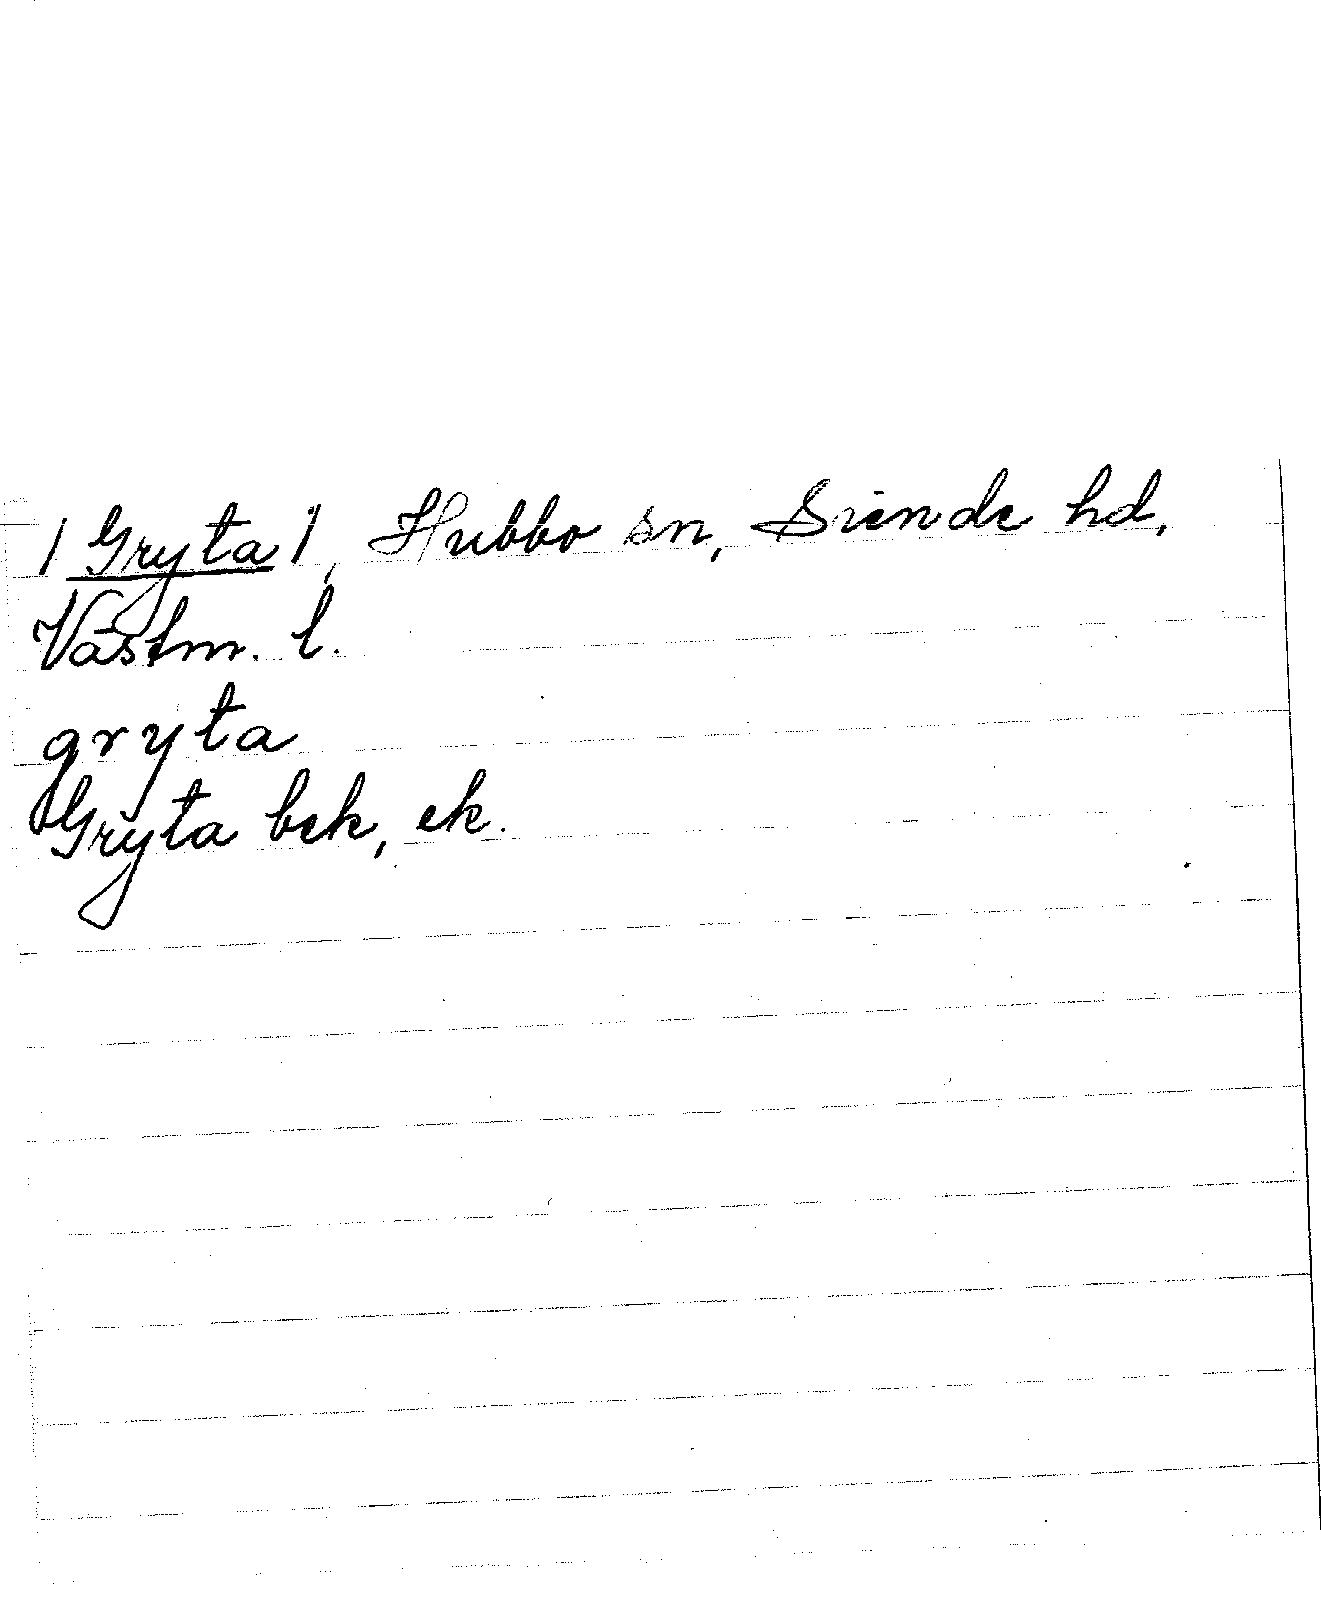 /Gryta/, Hubbo sn, Siende hd,
Västm. l.
gryta
Gryta bek, ek.